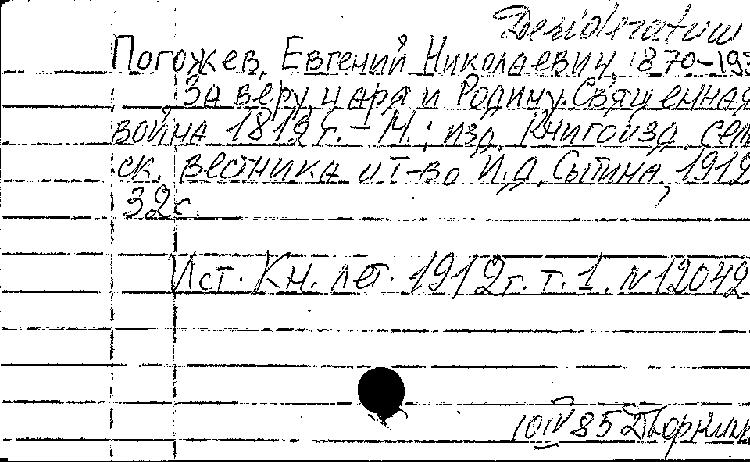 Desideratum
Погожев, Евгений Николаевич, 1870-193
За веру, царя и Родину. Священная
война 1812 г. - М.: изд. Книгоизд. сел
ск. вестника и т-во И.Д. Сытина, 1912
32 с.
Ист. Кн. лет. 1912 г. т. 1. N 12042
10 IV 85